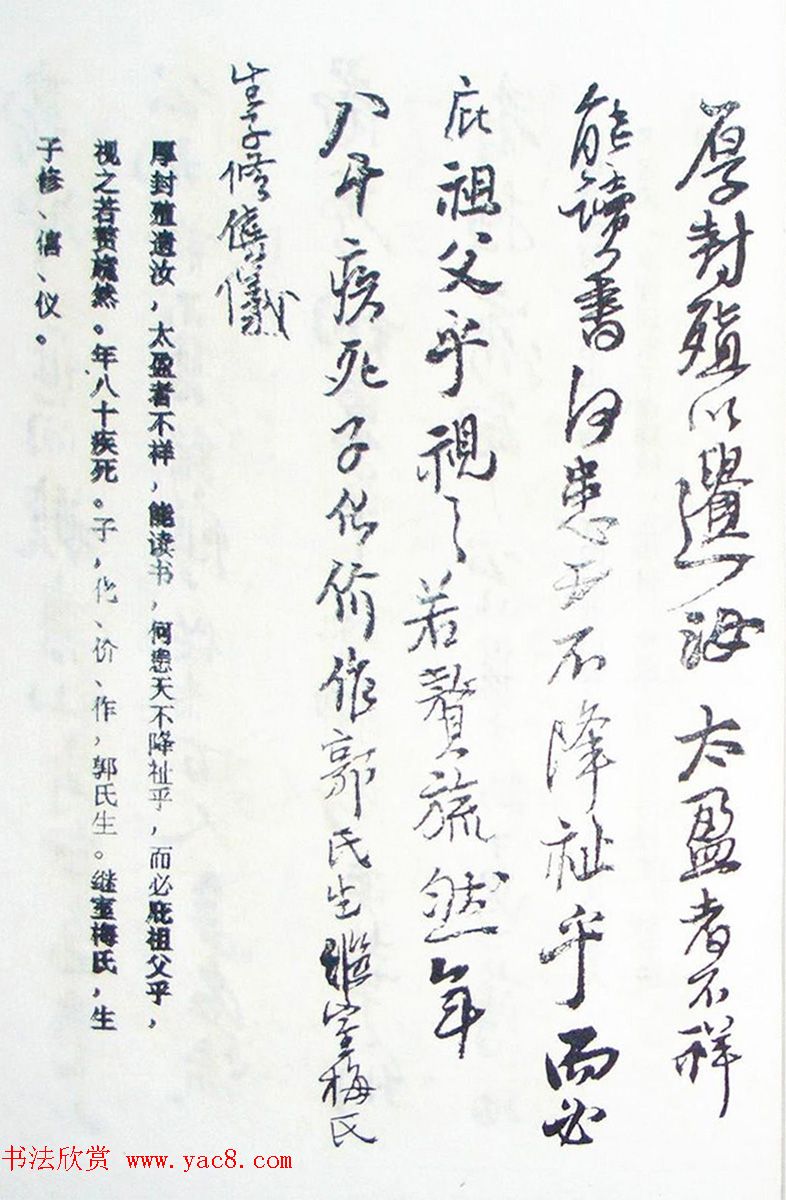 厚封殖以遺汝太盈者不祥
能讀書何患天不降祉乎而必
庇祖父乎視之若贅疣然年
八十疾死子化价作郭氏生繼室梅氏
生子修僖儀
厚封殖遗汝 太盈者不祥，能读书，何患天不降祉乎，而必庇祖父乎，
视之若赘疣然。年八十疾死。子，化、价、作，郭氏生。继室梅氏，生
子修、僖、仪。
书法欣赏 www.yac8.com